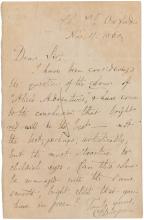 Ch. Ch. Oxford
Nov. 11. 186
Dear Sir,
I have been considering
the question of the colour of
Alice's Adventures, & have come
to the conclusion that bright
red will be the best — not
the best, perhaps, artistically,
but the most attractive to
childish eyes. Can this colour
be managed with the same
smooth, bright cloth that you
have in green?